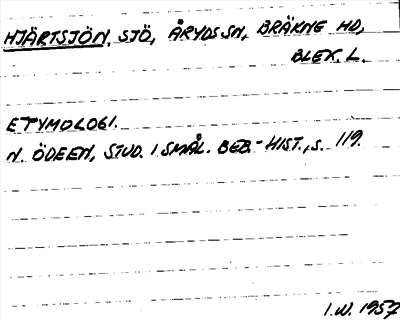 HJÄRTSJÖN, SJÖ, ÅRYDS SN, BRÄKNE HD,
BLEK. L.
ETYMOLOGI.
N. ÖDEEN, STUD. I SMÅL. BEB.-HIST., S. 119.
I.W. 1957